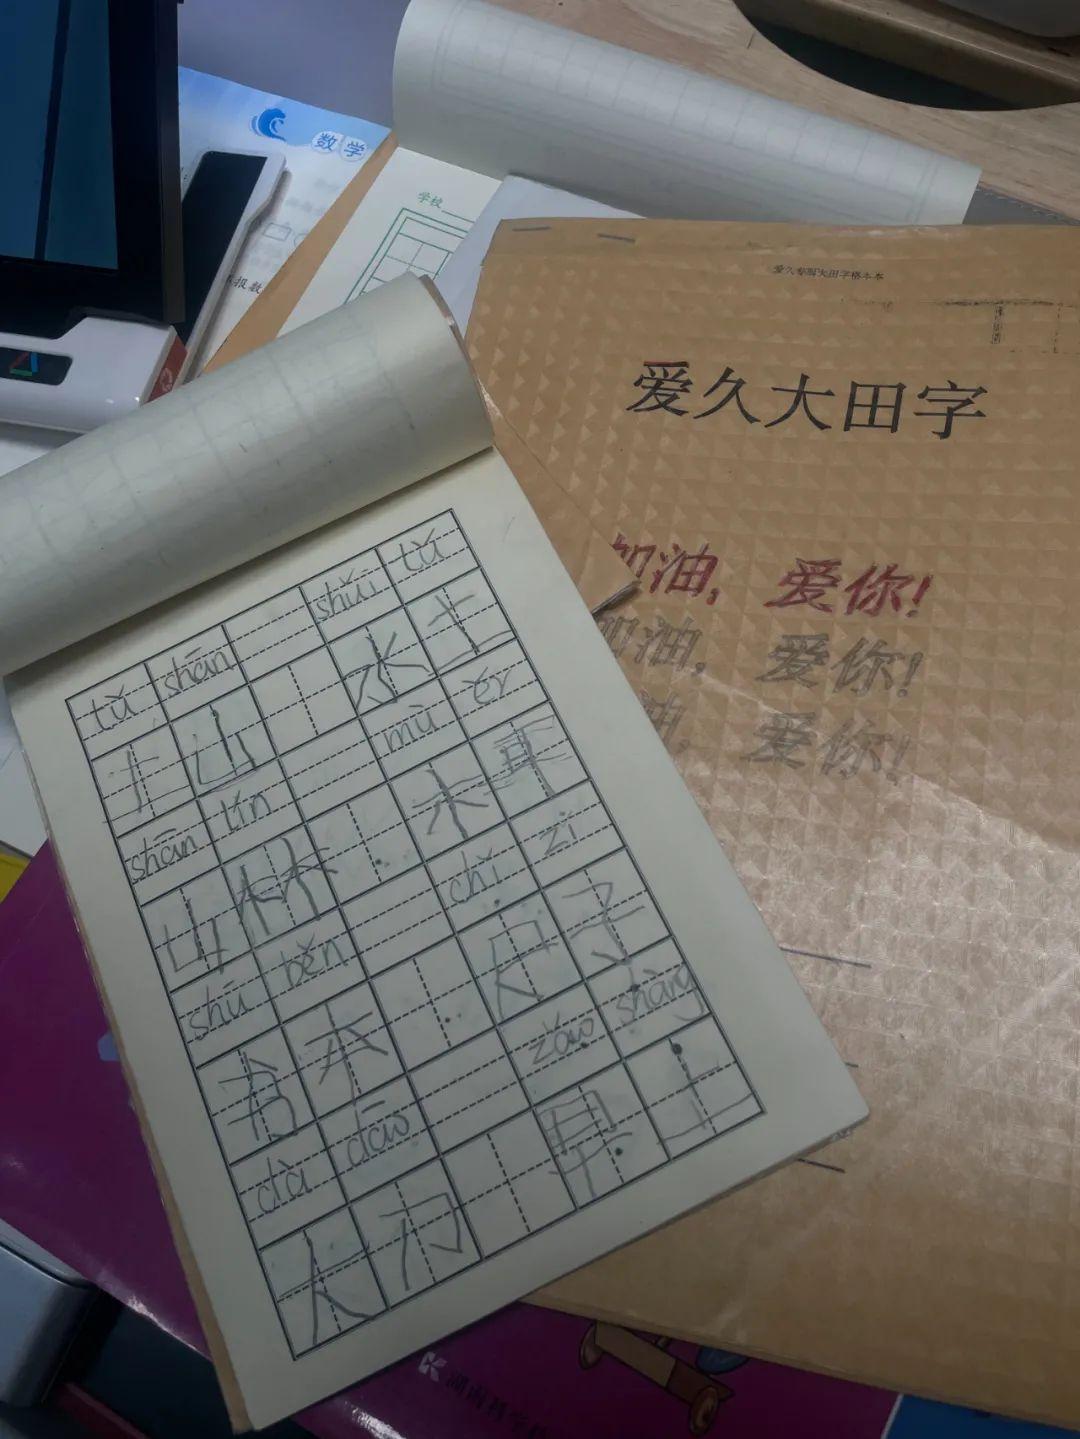 数学
学校
爱久专制大田字格本本
爱久大田字
加油，爱你！
加油，爱你！
油，爱你！
tǔ shān shuǐ tǔ
土 山 水 土
shān lín mù ěr
山 林 木 耳
shū běn chǐ zi
本 尺 子
dà dāo zǎo shàng
大 刀 早 上